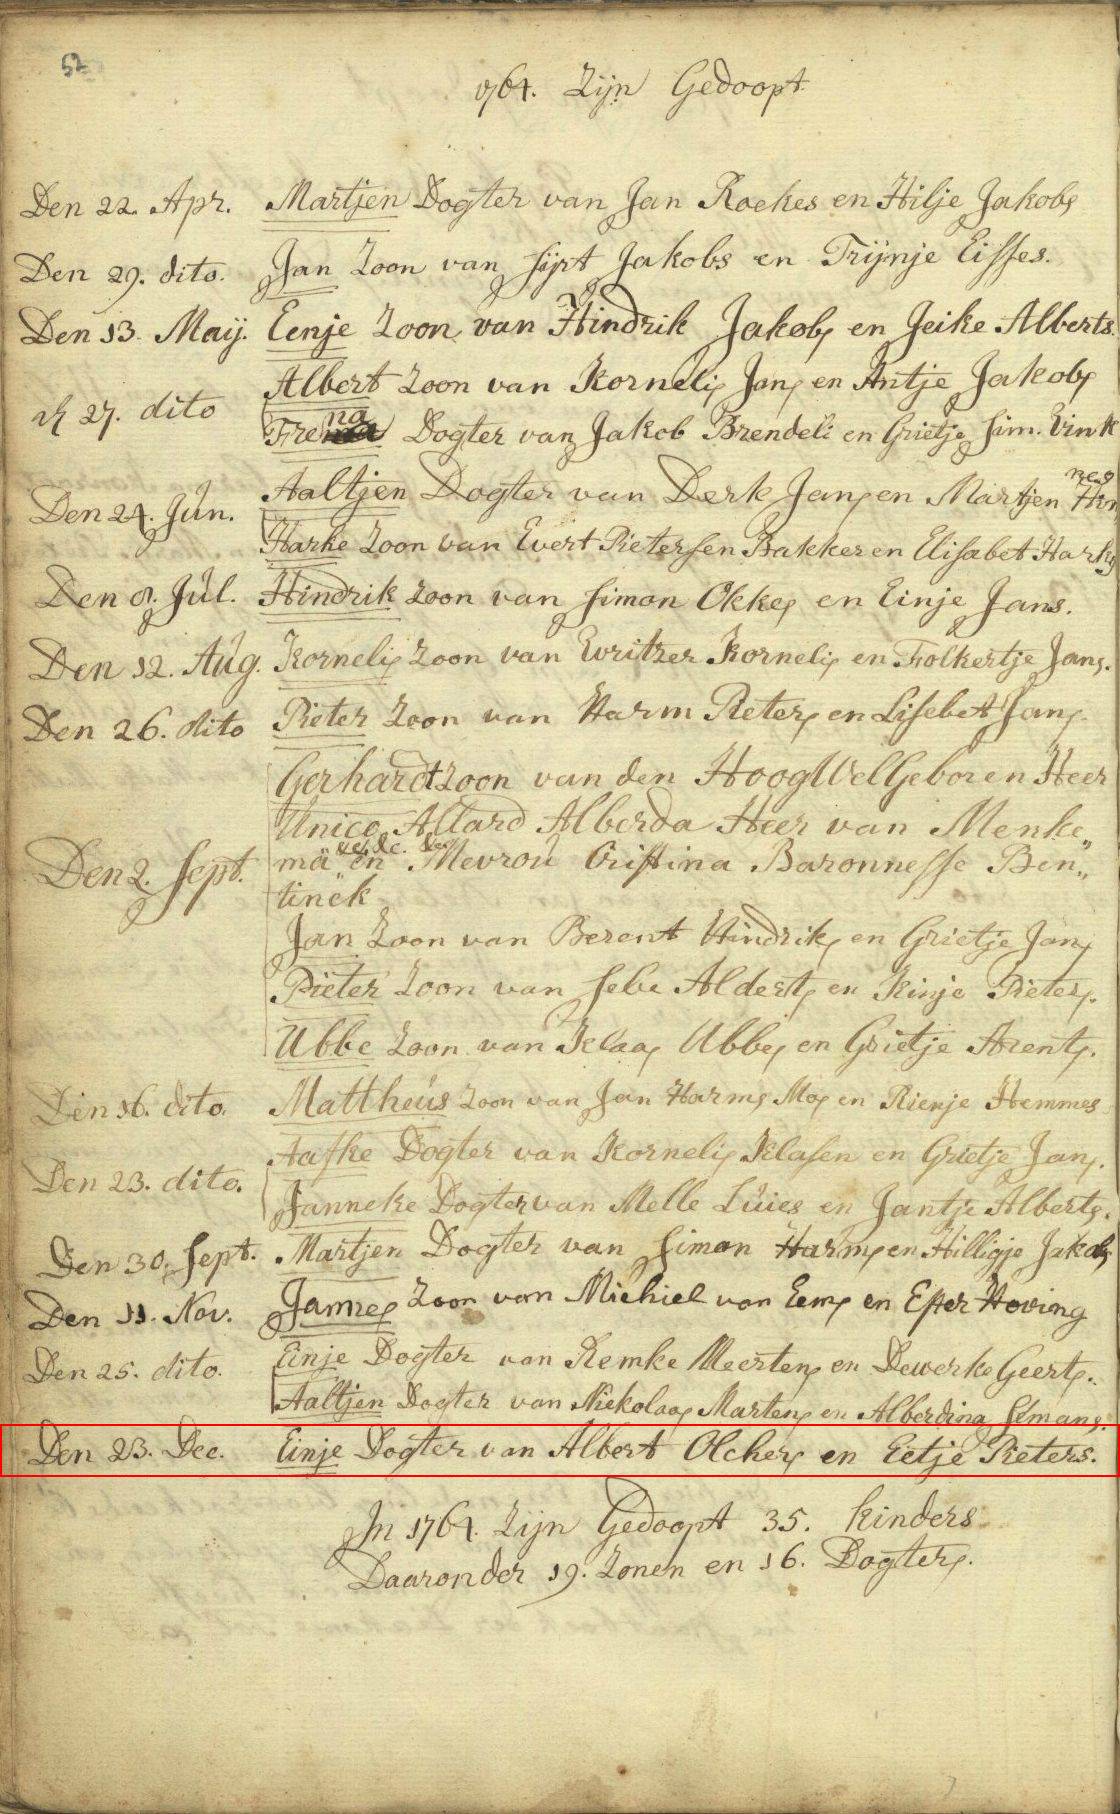 52
1764. Zijn Gedoopt
Den 22. Apr. Martjen Dogter van Jan Roekes en Hilje Jakobs
Den 29. dito. Jan Zoon van Sijrt Jakobs en Trijnje Eisses.
Den 13. Maij. Eenje Zoon van Hindrik Jakobs en Jeike Alberts.
Albert Zoon van Kornelis Jans en Antje Jakobs
27. dito
na
Fre Dogter van Jakob Brendeli en Grietje Sim. Vink
nes
Aaltjen Dogter van Derk Jans en Martjen Hin
Den 24. Jun.
Harke Zoon van Evert Pietersen Bakker en Elisabet Harks
Den 8. Jul. Hindrik Zoon van Simon Okkes en Einje Jans.
Den 12. Aug. Kornelis Zoon van Evritzer Kornelis en Folkertje Jans.
Den 26. dito Pieter Zoon van Harm Pieters en Lisebet Jans.
Gerhardt Zoon van den HoogWelGeboren Heer
Unico Allard Alberda Heer van Menke„
Den 2. Sept. ma en Mevrou Cristina Baronnesse Ben„
tinck
Jan Zoon van Berent Hindriks en Grietje Jans
Pieter Zoon van Sebe Alderts en Kinje Pieters.
Ubbe Zoon van Klaas Ubbes en Grietje Arents.
Den 16. dito. Mattheus Zoon van Jan Harms Mos en Rienje Hemmes
Aafke Dogter van Kornelis Klasen en Grietje Jans.
Den 23. dito.
Janneke Dogter van Melle Luies en Jantje Alberts.
Den 30. Sept. Martjen Dogter van Simon Harms en Hilligje Jakobs
Den 11. Nov. Jannes Zoon van Michiel van Eems en Ester Hoving
Den 25. dito. Einje Dogter van Remke Meertens en Dewerke Geerts.
Aaltjen Dogter van Niekolaas Martens en Alberdina Simans.
Den 23. Dec. Einje Dogter van Albert Olchers en Eetje Pieters.
In 1764. Zijn Gedoopt 35. kinders
Daaronder 19. Zonen en 16. Dogters.